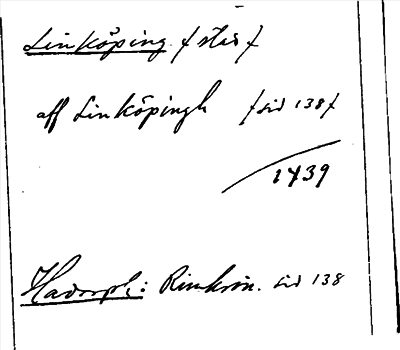 Linköping /stad/
aff Linköpingh /sid 138/
1439
Hadorph: Rimkrön. sid 138